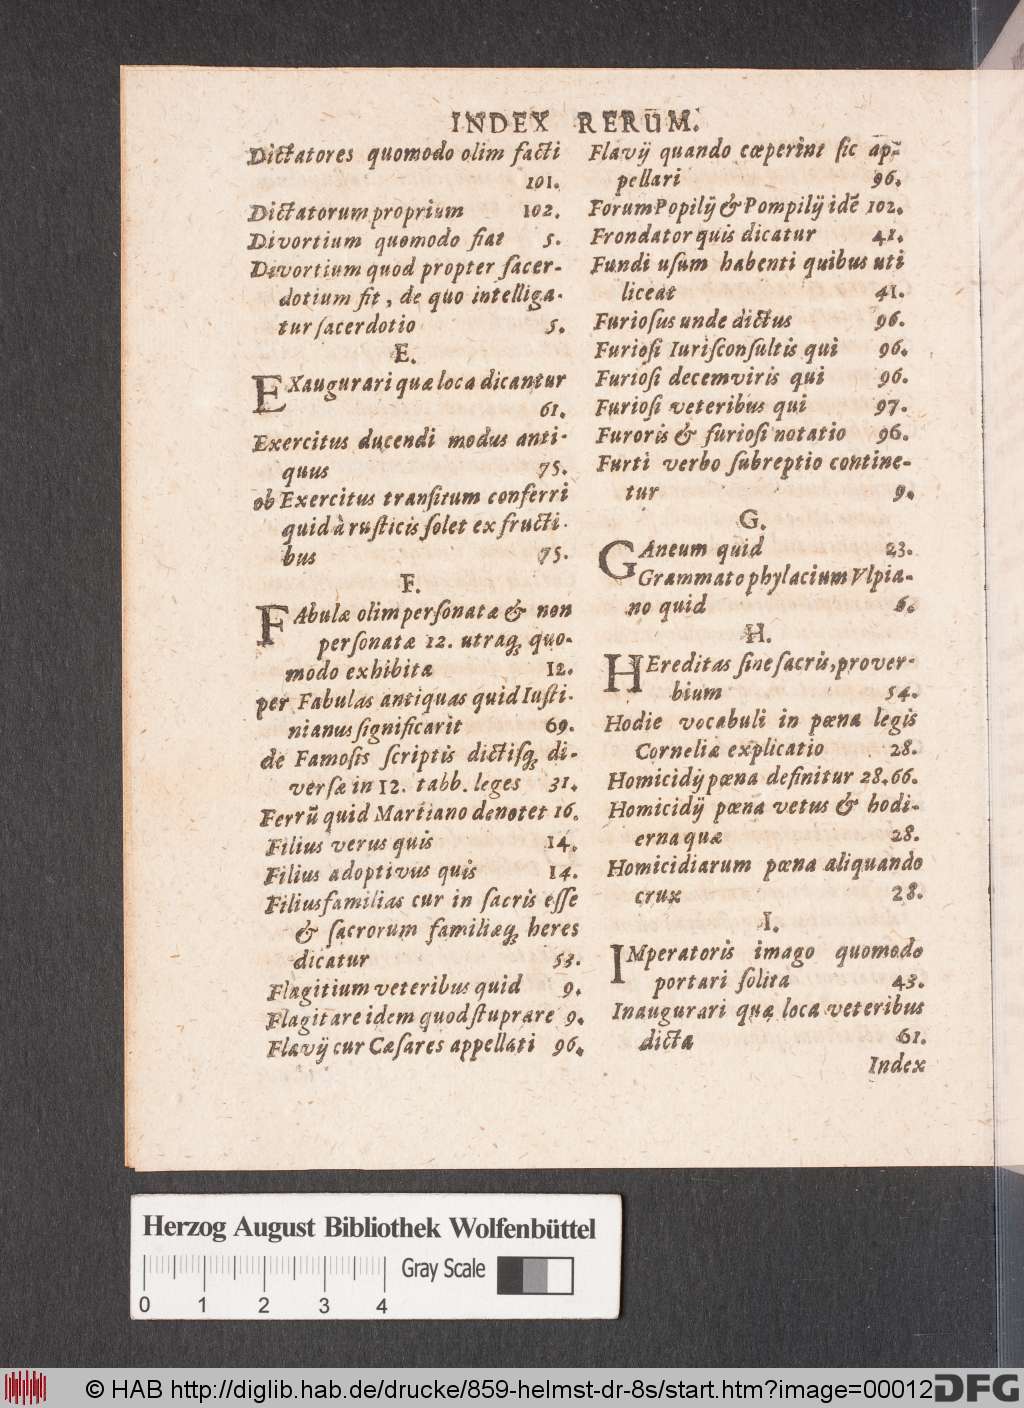 INDEX RERUM.
Dictatores quomodo olim facti
101.
Dictatorum proprium 102.
Divortium quomodo fiat 5.
Divortium quod propter ſacer-
dotium fit, de quo intelliga-
tur ſacerdotio 5.
E.
EXaugurari quæ loca dicantur
61.
Exercitus ducendi modus anti-
quus 75.
ob Exercitus tranſitum conferri
quid à ruſticis ſolet ex fructi-
bus 75.
F.
FAbulæ olim perſonatæ & non
perſonatæ 12. utraq; quo-
modo exhibitæ 12.
per Fabulas antiquas quid Iuſti-
nianus ſignificarit 69.
de Famoſis ſcriptis dictiſq; di-
verſæ in 12. tabb. leges 31.
Ferrū quid Martiano denotet 16.
Filius verus quis 14.
Filius adoptivus quis 14.
Filiusfamilias cur in ſacris eſſe
& ſacrorum familiæq; heres
dicatur 53.
Flagitium veteribus quid 9.
Flagitare idem quod ſtuprare 9.
Flavij cur Cæſares appellati 96.
Flavij quando cœperint ſic ap-
pellari 96.
Forum Popilij & Pompilij idē 102.
Frondator quis dicatur 41.
Fundi uſum habenti quibus uti
liceat 41.
Furioſus unde dictus 96.
Furioſi Iuriſconſultis qui 96.
Furioſi decemviris qui 96.
Furioſi veteribus qui 97.
Furoris & furioſi notatio 96.
Furti verbo ſubreptio contine-
tur 9.
G.
GAneum quid 23.
Grammatophylacium Vlpia-
no quid 6.
H.
HEreditas ſine ſacris, prover-
bium 54.
Hodie vocabuli in pœna legis
Corneliæ explicatio 28.
Homicidij pœna definitur 28.66.
Homicidij pœna vetus & hodi-
erna quæ 28.
Homicidiarum pœna aliquando
crux 28.
I.
IMperatoris imago quomodo
portari ſolita 43.
Inaugurari quæ loca veteribus
dicta 61.
Index
Herzog August Bibliothek Wolfenbüttel
Gray Scale
0 1 2 3 4
© HAB http://diglib.hab.de/drucke/859-helmst-dr-8s/start.htm?image=00012
DFG